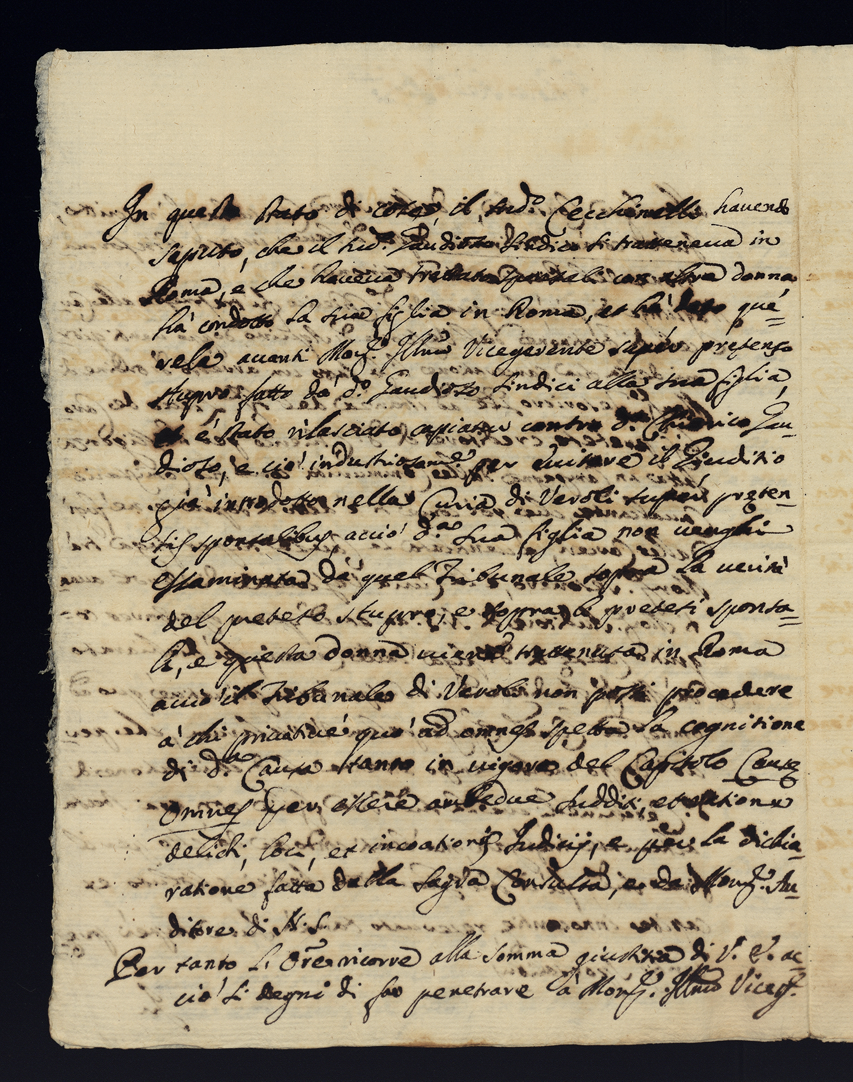 In questo stato di cose, il sud.º Cecchinelli havendo
saputo, che il sud.º Gaudioso Sindici si tratteneva in
Roma, e che haveva trattato sponsali con altra donna
hà condotto la sua figlia in Roma, et hà dato que=
rela avanti Mons.r Ill.mo Vicegerente super pretenso
stupro fatto dà d.º Gaudioso Sindici alla sua figlia,
et è stato rilasciato capiatur contro d.º Chierico Gau=
dioso, e ciò industriosam.e per evitare il Giuditio
già introdotto nella Curia di Veroli super preten=
sis sponsalibus acciò d.ª sua figlia non venghi
essaminata dà quel Tribunale sopra la verità
del preteso stupro, e sopra le pretesi sponsa=
li, e questa donna viene trattenuta in Roma
acciò il Tribunale di Veroli non possi procedere
à chi privativè quò ad omnes spetta la cognitione
di d.ª Causa tanto in vigore del Capitolo Causæ
Omnes per essere ambedue sudditi, et ratione
delicti, loci, et incoationis Iudicij, e per la dichia=
ratione fatta dalla Sagra Consulta, e dà Mons.r Au=
ditore di N. S.
Per tanto l' Ore ricorre alla somma giustitia di V. S. ac=
ciò si degni di far penetrare à Mons.r Ill.mo Viceg.